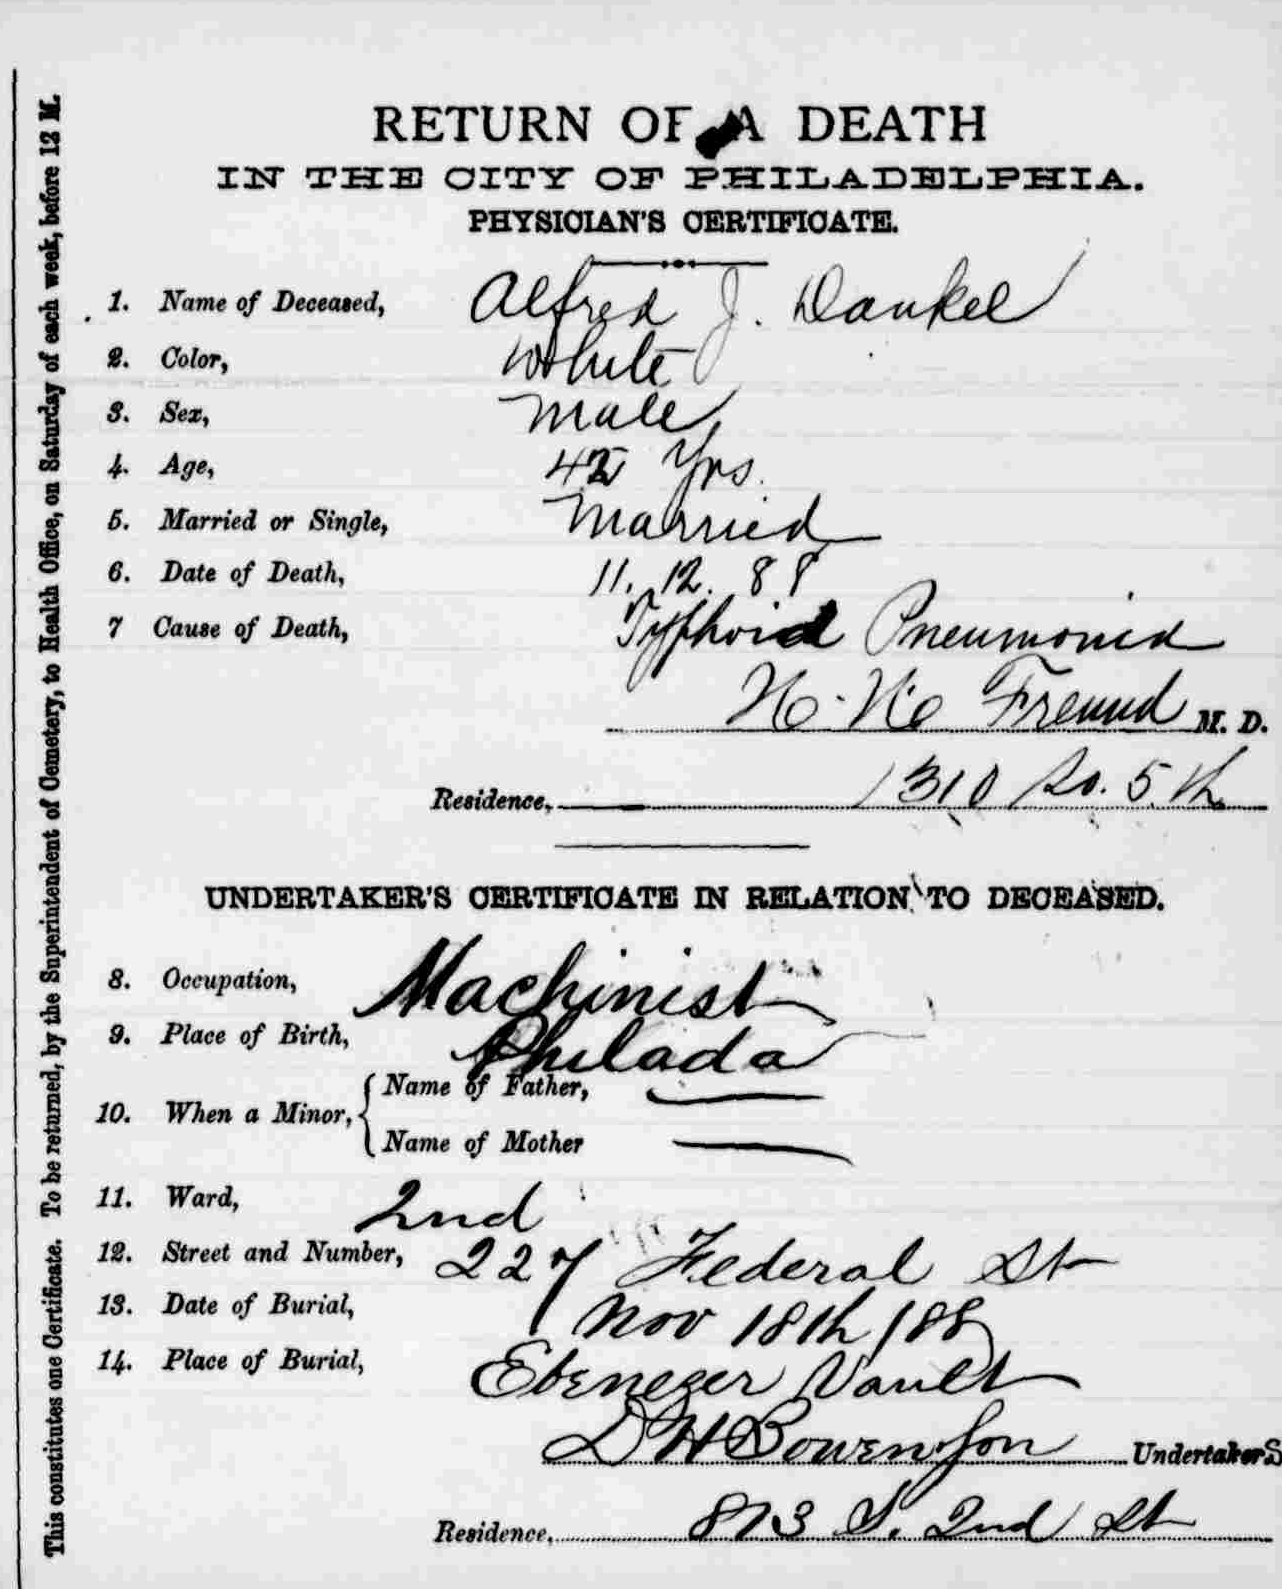 RETURN OF A DEATH
IN THE CITY OF PHILADELPHIA.
PHYSICIAN'S CERTIFICATE.
1. Name of Deceased, Alfred J. Dankel
2. Color, White
3. Sex, Male
4. Age, Yrs.
5. Married or Single, Married
6. Date of Death, 11. 12. 88
7 Cause of Death, Typhoid Pneumonia
Freund M. D.
Residence, 1310 So. 5th
UNDERTAKER'S CERTIFICATE IN RELATION TO DECEASED.
8. Occupation, Machinist
9. Place of Birth, Philada
10. When a Minor, { Name of Father, —
Name of Mother —
11. Ward, 2nd
12. Street and Number, 227 Federal St
13. Date of Burial, Nov 18th 188
14. Place of Burial, Ebenezer Vault
D H Bowen Son Undertakers
Residence, 873 S. 2nd St
This constitutes one Certificate. To be returned, by the Superintendent of Cemetery, to Health Office, on Saturday of each week, before 12 M.